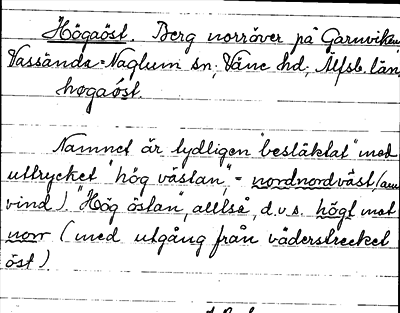 Högaöst. Berg norröver på Garnviken,
Vassända-Naglum sn, Väne hd, Älfsb. län.
högaöst.
Namnet är tydligen "besläktat" med
uttrycket "hög västan", = nordnordväst (om
vind). "Hög östan", alltså, d.v.s. högt mot
norr (med utgång från väderstrecket
öst)